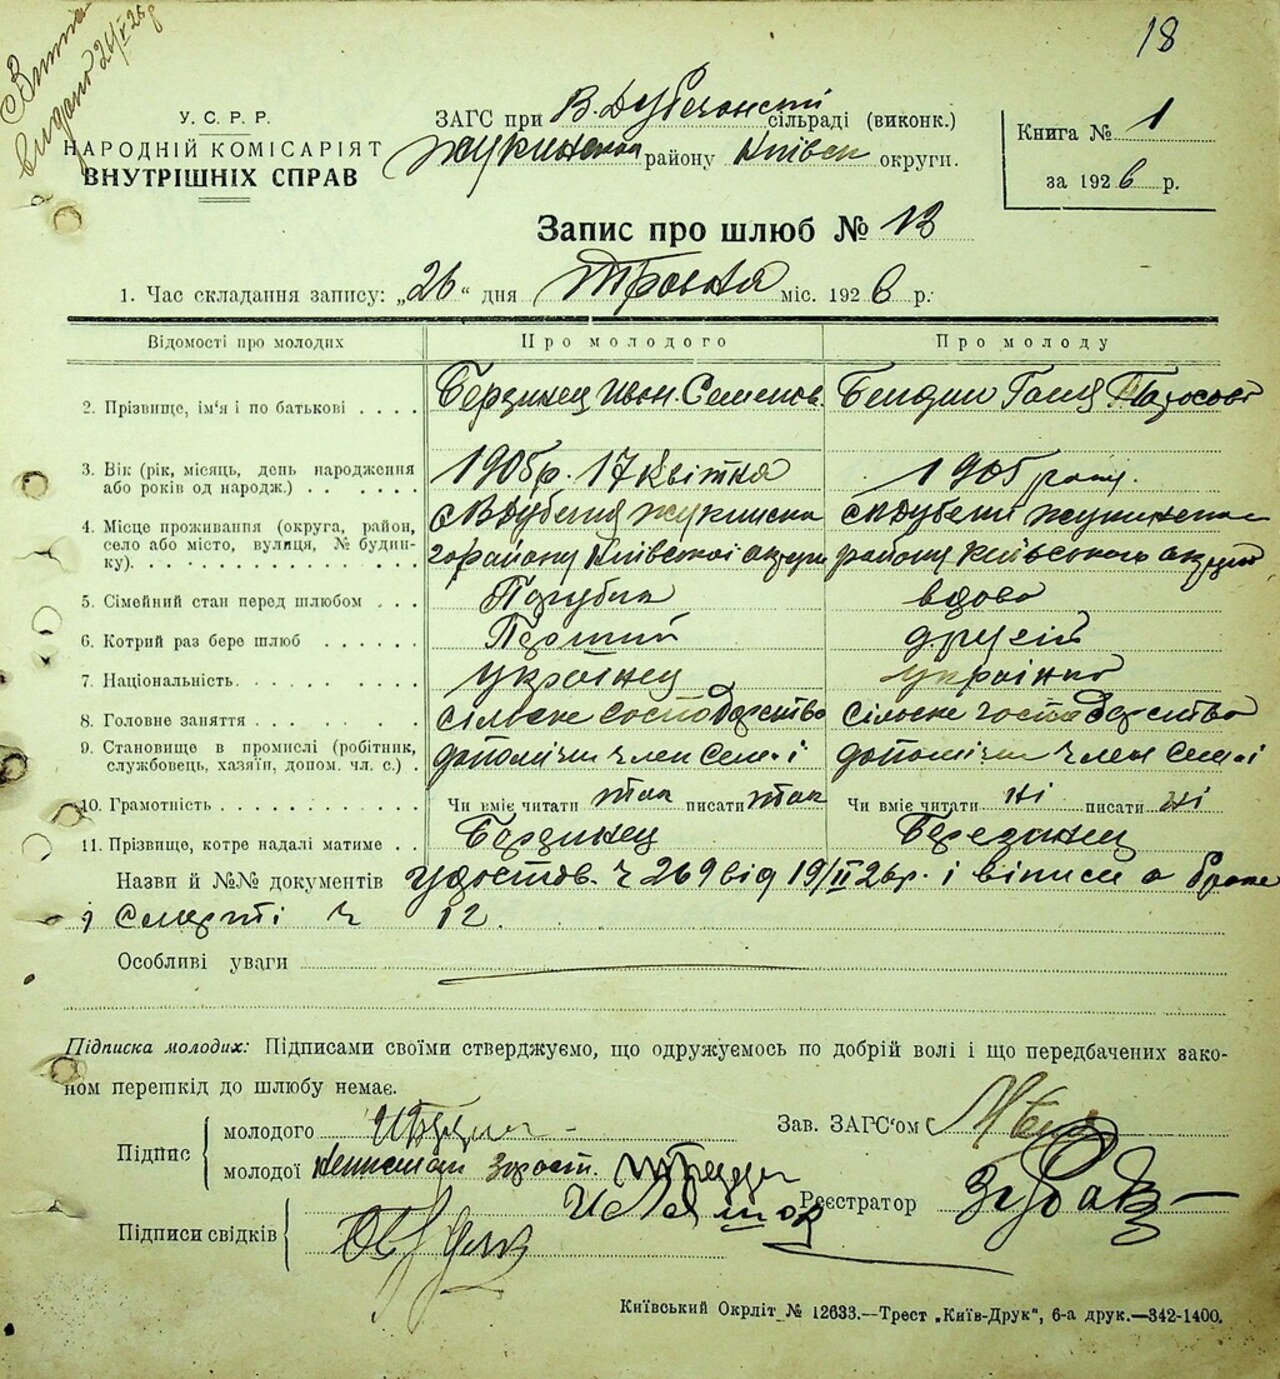 18
Витяг
видано 26/V 26 р
У. С. Р. Р.
НАРОДНІЙ КОМІСАРІЯТ
ВНУТРІШНІХ СПРАВ
ЗАГС при В. Дубечанскі сільраді (виконк.)
Жукинском району Київск округи.
Книга № 1
за 1926 р.
Запис про шлюб № 13
1. Час складання запису: „26“ дня Травня міс. 1926 р.
Відомості про молодих Про молодого Про молоду
2. Прізвище, ім'я і по батькові . . . . Іван. Семенов. Ганя
3. Вік (рік, місяць, день народження 1905 р. 17 Квітня 1905 року.
або років од народж.) . . . . . .
4. Місце проживання (округа, район,
село або місто, вулиця, № будин- району Київської округи району Київського
ку). . . . . . . . . . . . . . .
5. Сімейний стан перед шлюбом . . . Парубок вдова
6. Котрий раз бере шлюб . . . . . . Перший другий
7. Національність. . . . . . . . . українец українка
8. Головне заняття . . . . . . . . Сільске господарство Сільске господарство
9. Становище в промислі (робітник, допоміжн член семʼі допоміжн член семʼі
службовець, хазяїн, допом. чл. с.) .
10. Грамотність . . . . . . . . . . Чи вміє читати так писати так Чи вміє читати ні писати ні
11. Прізвище, котре надалі матиме . . Березинец Березинец
Назви й №№ документів удостов. ч 269 від 19/II 26 р. і віписи о браке
і смерті ч 12.
Особливі уваги
Підписка молодих: Підписами своїми стверджуємо, що одружуємось по добрій волі і що передбачених зако-
ном перешкід до шлюбу немає.
Підпис
молодого
Зав. ЗАГС'ом
молодої
Реєстратор
Підписи свідків
Київський Окрліт № 12633.—Трест „Київ-Друк“, 6-а друк.—342-1400.